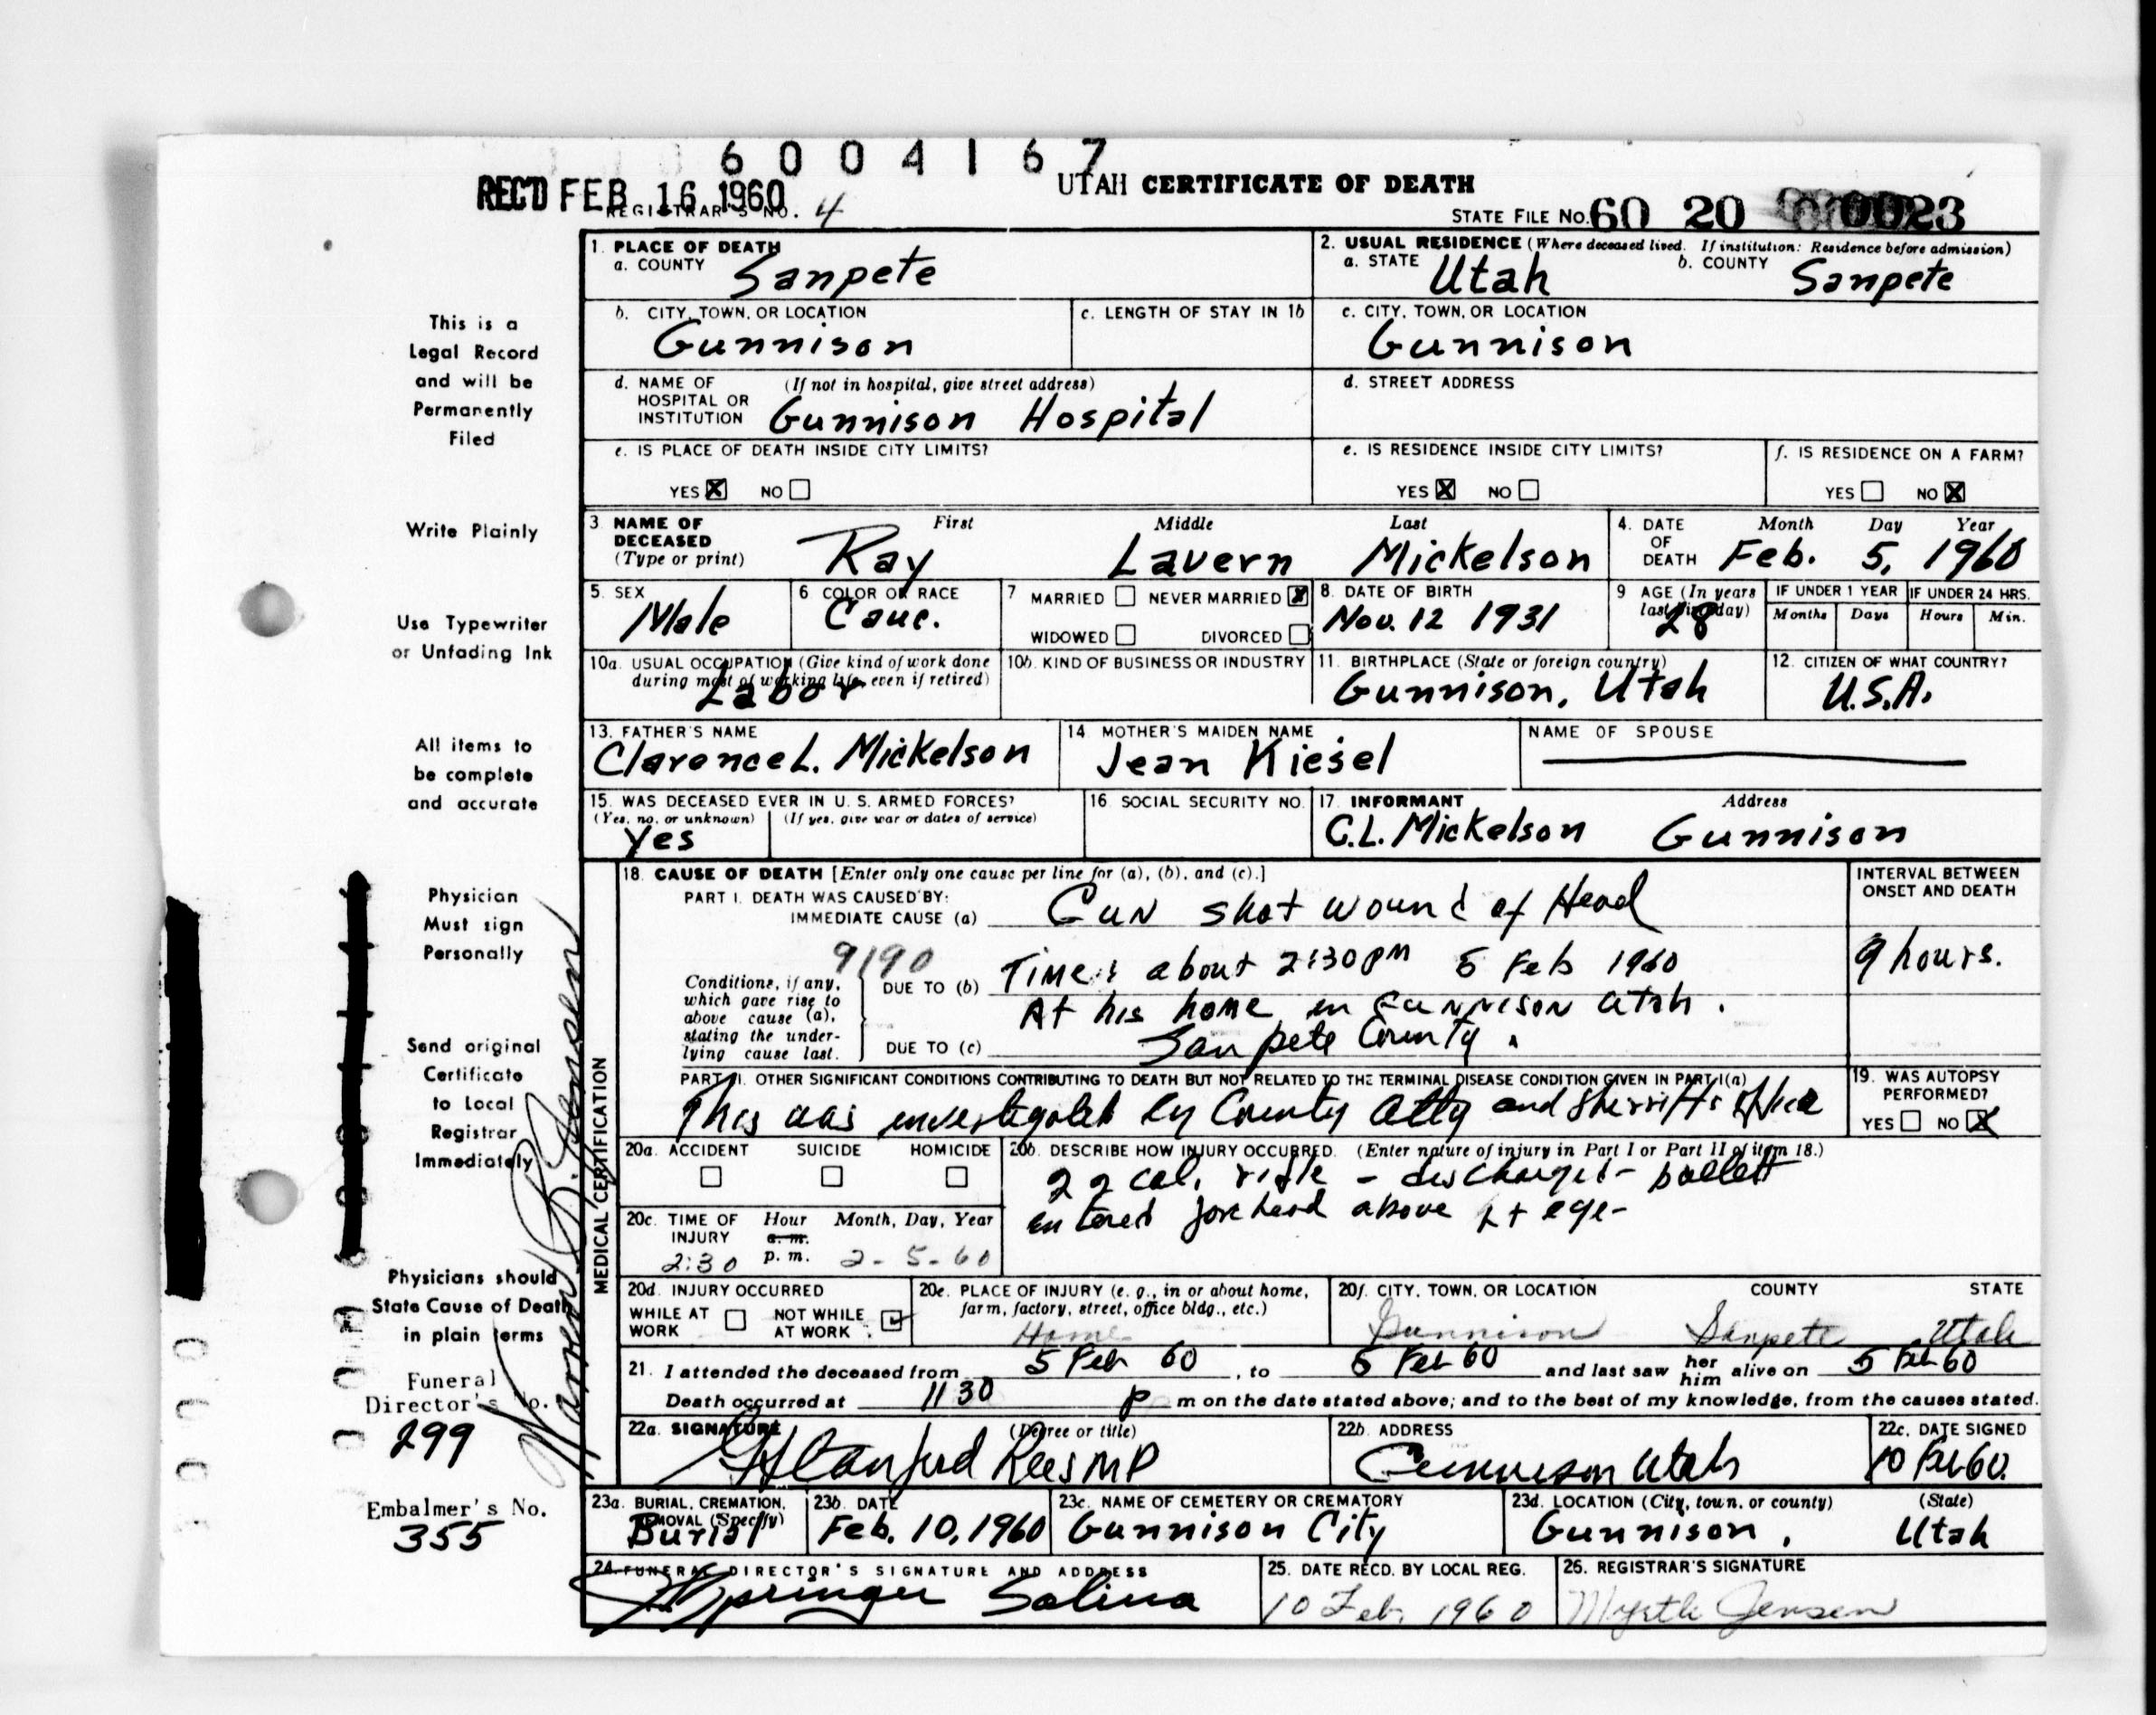 6004167
REC'D FEB 16 1960 UTAH CERTIFICATE OF DEATH
REGISTRAR'S NO. 4
STATE FILE NO. 60 20 0023
This is a
Legal Record
and will be
Permanently
Filed
Write Plainly
Use Typewriter
or Unfading Ink
All items to
be complete
and accurate
Physician
Must sign
Personally
Send original
Certificate
to Local
Registrar
Immediately
Physicians should
State Cause of Death
in plain terms
Funeral
Director's No.
299
Embalmer's No.
355
1. PLACE OF DEATH
a. COUNTY Sanpete
2. USUAL RESIDENCE (Where deceased lived. If institution: Residence before admission)
a. STATE Utah b. COUNTY Sanpete
b. CITY, TOWN, OR LOCATION
Gunnison
c. LENGTH OF STAY IN 1b
c. CITY, TOWN, OR LOCATION
Gunnison
d. NAME OF (If not in hospital, give street address)
HOSPITAL OR
INSTITUTION Gunnison Hospital
d. STREET ADDRESS
e. IS PLACE OF DEATH INSIDE CITY LIMITS?
YES X NO
e. IS RESIDENCE INSIDE CITY LIMITS?
YES X NO
f. IS RESIDENCE ON A FARM?
YES NO X
3. NAME OF DECEASED (Type or print) First Middle Last
Ray Lavern Mickelson
4. DATE OF DEATH Month Day Year
Feb. 5, 1960
5. SEX
Male
6 COLOR OR RACE
Cauc.
7 MARRIED NEVER MARRIED X
WIDOWED DIVORCED
8. DATE OF BIRTH
Nov. 12 1931
9 AGE (In years last birthday)
28
IF UNDER 1 YEAR IF UNDER 24 HRS.
Months Days Hours Min.
10a. USUAL OCCUPATION (Give kind of work done
during most of working life, even if retired)
Labor
10b. KIND OF BUSINESS OR INDUSTRY
11. BIRTHPLACE (State or foreign country)
Gunnison, Utah
12. CITIZEN OF WHAT COUNTRY?
U.S.A.
13. FATHER'S NAME
Clarence L. Mickelson
14 MOTHER'S MAIDEN NAME
Jean Kiesel
NAME OF SPOUSE
15. WAS DECEASED EVER IN U. S. ARMED FORCES?
(Yes, no, or unknown) (If yes, give war or dates of service)
Yes
16 SOCIAL SECURITY NO.
17. INFORMANT Address
C.L. Mickelson Gunnison
MEDICAL CERTIFICATION
18. CAUSE OF DEATH [Enter only one cause per line for (a), (b), and (c).]
PART I. DEATH WAS CAUSED BY:
IMMEDIATE CAUSE (a) Gun shot wound of Head
INTERVAL BETWEEN
ONSET AND DEATH
9 hours.
9190
Conditions, if any,
which gave rise to
above cause (a),
stating the under-
lying cause last.
DUE TO (b) Time: about 2:30 PM 5 Feb 1960
At his home in Gunnison Utah.
DUE TO (c) Sanpete County.
PART II. OTHER SIGNIFICANT CONDITIONS CONTRIBUTING TO DEATH BUT NOT RELATED TO THE TERMINAL DISEASE CONDITION GIVEN IN PART I(a)
This was investigated by County Atty and Sherriffs Office
19. WAS AUTOPSY
PERFORMED?
YES NO X
20a. ACCIDENT SUICIDE HOMICIDE
20b. DESCRIBE HOW INJURY OCCURRED. (Enter nature of injury in Part I or Part II of item 18.)
22 cal. rifle - discharged - bullett
entered forehead above Lt eye -
20c. TIME OF INJURY Hour Month, Day, Year
a. m.
2:30 p. m. 2-5-60
20d. INJURY OCCURRED
WHILE AT WORK NOT WHILE AT WORK
20e. PLACE OF INJURY (e. g., in or about home,
farm, factory, street, office bldg., etc.)
Home
20f. CITY, TOWN, OR LOCATION COUNTY STATE
Gunnison Sanpete Utah
21. I attended the deceased from 5 Feb 60, to 5 Feb 60 and last saw her him alive on 5 Feb 60
Death occurred at 11 30 p m on the date stated above; and to the best of my knowledge, from the causes stated.
22a. SIGNATURE (Degree or title)
Stanford Rees MD
22b. ADDRESS
Gunnison Utah
22c. DATE SIGNED
10 Feb 60.
23a. BURIAL, CREMATION,
REMOVAL (Specify)
Burial
23b. DATE
Feb. 10, 1960
23c. NAME OF CEMETERY OR CREMATORY
Gunnison City
23d. LOCATION (City, town, or county) (State)
Gunnison, Utah
24. FUNERAL DIRECTOR'S SIGNATURE AND ADDRESS
Springer Salina
25. DATE RECD. BY LOCAL REG.
10 Feb. 1960
26. REGISTRAR'S SIGNATURE
Myrtle Jensen